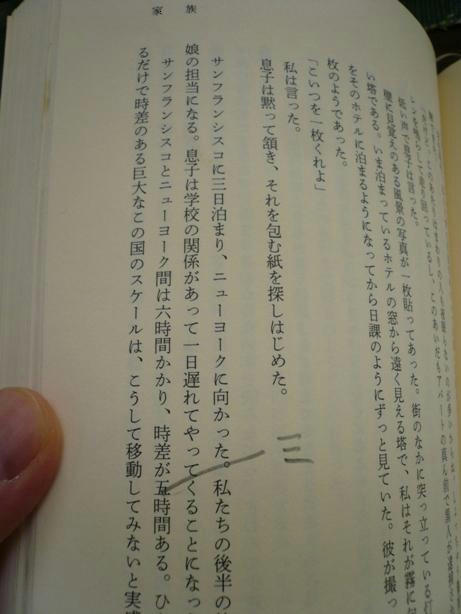 家　族
低い声で息子は言った。
壁に見覚えのある風景の写真が一枚貼ってあった。街のなかに突っ立っている灯
い塔である。いま泊まっているホテルの窓から遠く見える塔で、私はそれが霧に包
をそのホテルに泊まるようになってから日課のようにずっと見ていた。彼が撮っ
枚のようであった。
「こいつを一枚くれよ」
私は言った。
息子は黙って頷き、それを包む紙を探しはじめた。
サンフランシスコに三日泊まり、ニューヨークに向かった。私たちの後半の
娘の担当になる。息子は学校の関係があって一日遅れてやってくることになっ
サンフランシスコとニューヨーク間は六時間かかり、時差が五時間ある。ひ
るだけで時差のある巨大なこの国のスケールは、こうして移動してみないと実
三